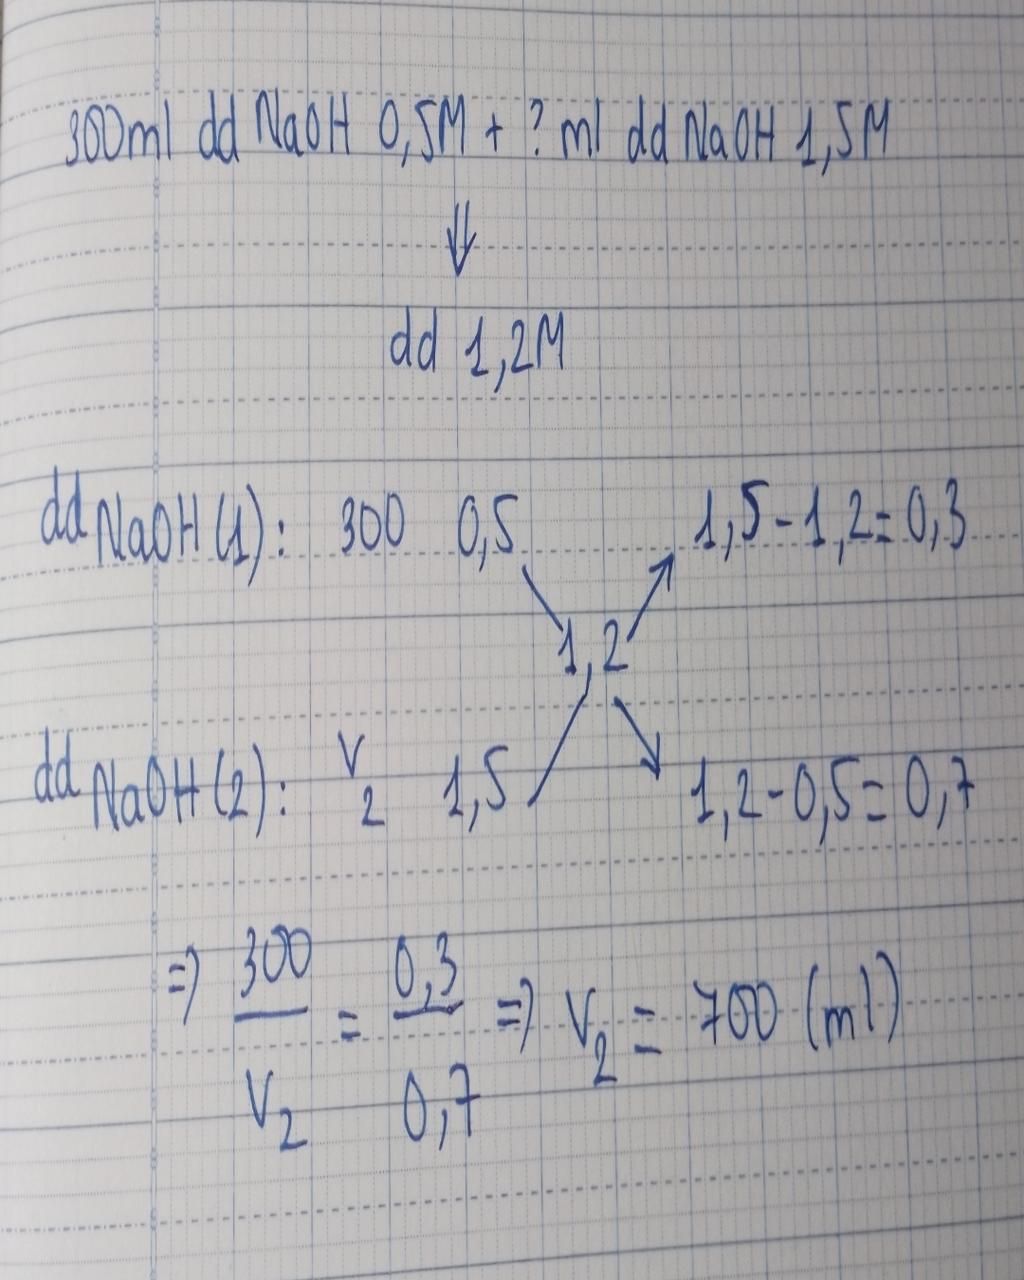 300ml dd NaOH 0,5M + ? ml dd NaOH 1,5M
⇓
dd 1,2M
dd NaOH (1): 300 0,5 1,5-1,2=0,3
1,2
dd NaOH (2): V2 1,5 1,2-0,5=0,7
=> 300/V2 = 0,3/0,7 => V2 = 700 (ml)